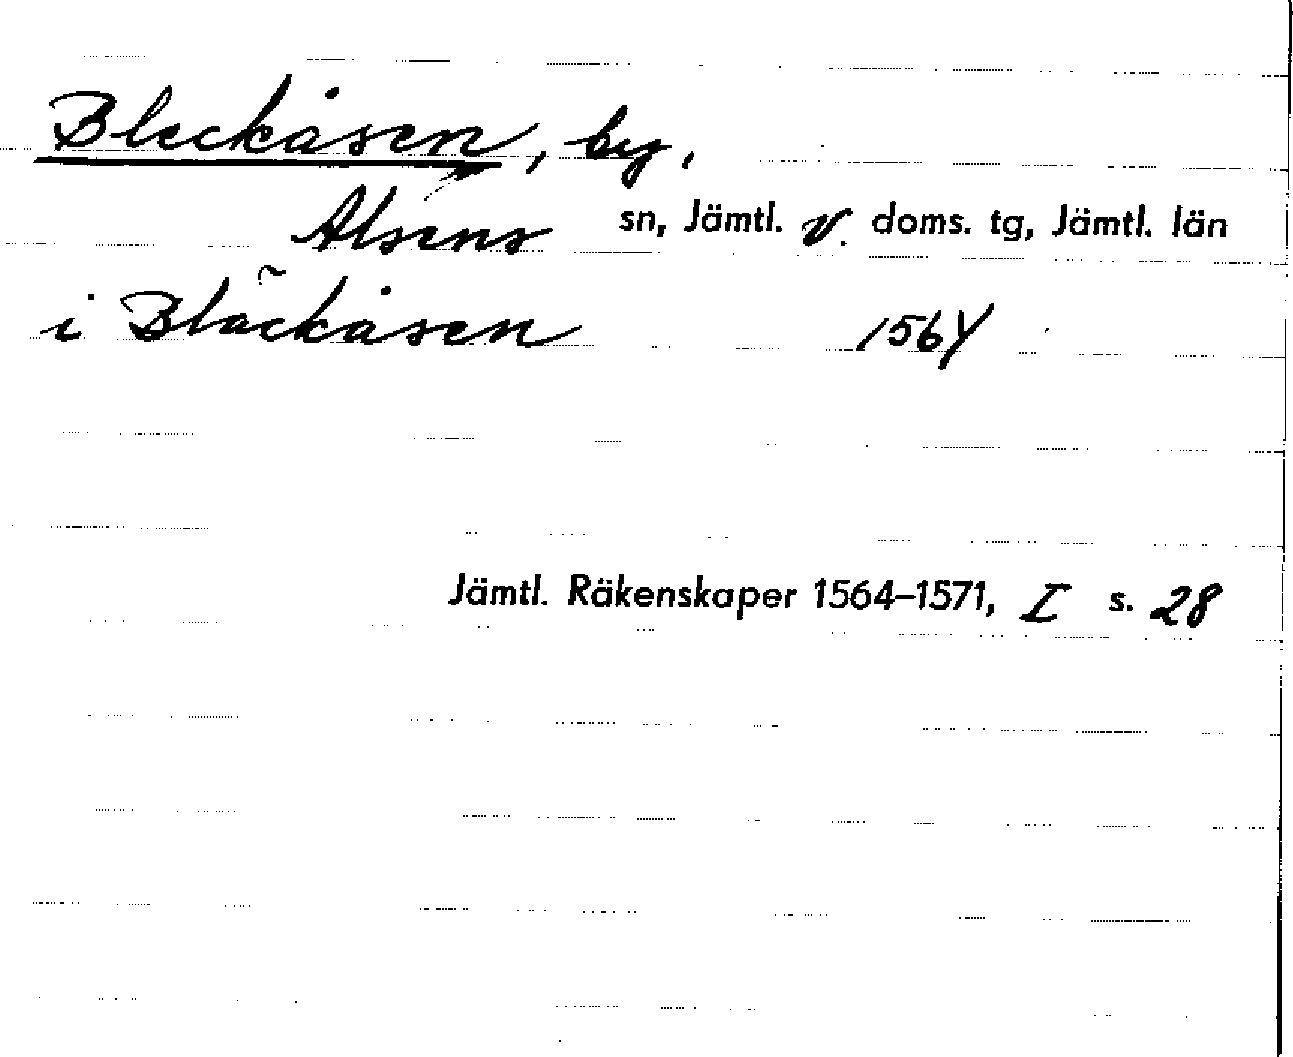 Bleckåsen, by,
Alsens sn, Jämtl. v. doms. tg, Jämtl. län
i Bläckåsen 1564
Jämtl. Räkenskaper 1564–1571, I s. 28